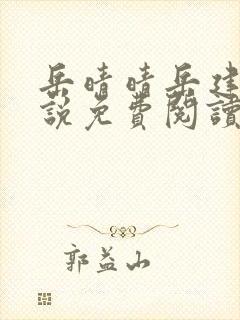 岳晴晴岳建
說免費閱讀
郭益山